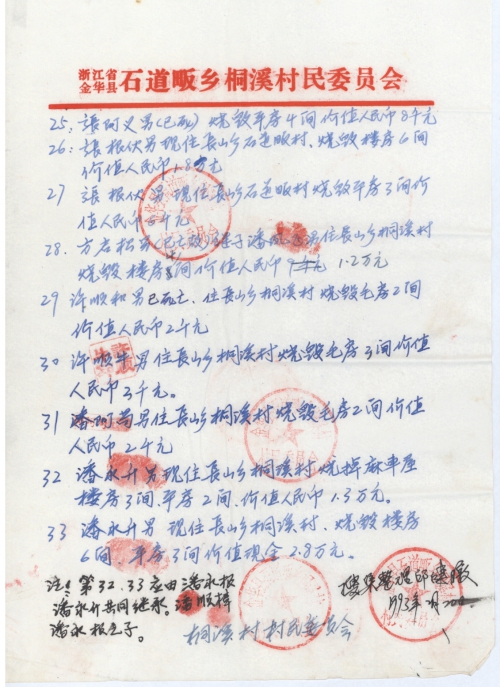 浙江省
金华县 石道畈乡桐溪村民委员会
25，張阿义男(已死)烧毁平房4间价值人民币8千元
26：張根伏男现住長山乡石道畈村、烧毁楼房6间
价值人民币1.8万元
27 張根伏男现住長山乡石道畈村烧毁平房3间价
值人民币 千元
28. 方店松 继子潘 男住長山乡桐溪村
烧毁楼房 间价值人民币 1.2万元
29 许顺和男已死亡、住長山乡桐溪村烧毁毛房2间
价值人民币2千元
30 许顺牛男住長山乡桐溪村烧毁毛房3间价值
人民币3千元。
31 潘阿苟男住長山乡桐溪村烧毁毛房2间价值
人民币2千元
32 潘永升男现住長山乡桐溪村烧掉麻車屋
楼房3间、平房2间、价值人民币1.3万元。
33 潘永升男 现住長山乡桐溪村、烧毁楼房
6间 平房3间价值现金2.8万元。
注：第32.33应由潘永根
潘永升共同继承。潘顺樟
潘永根之子。
桐溪村村民委员会
1993年